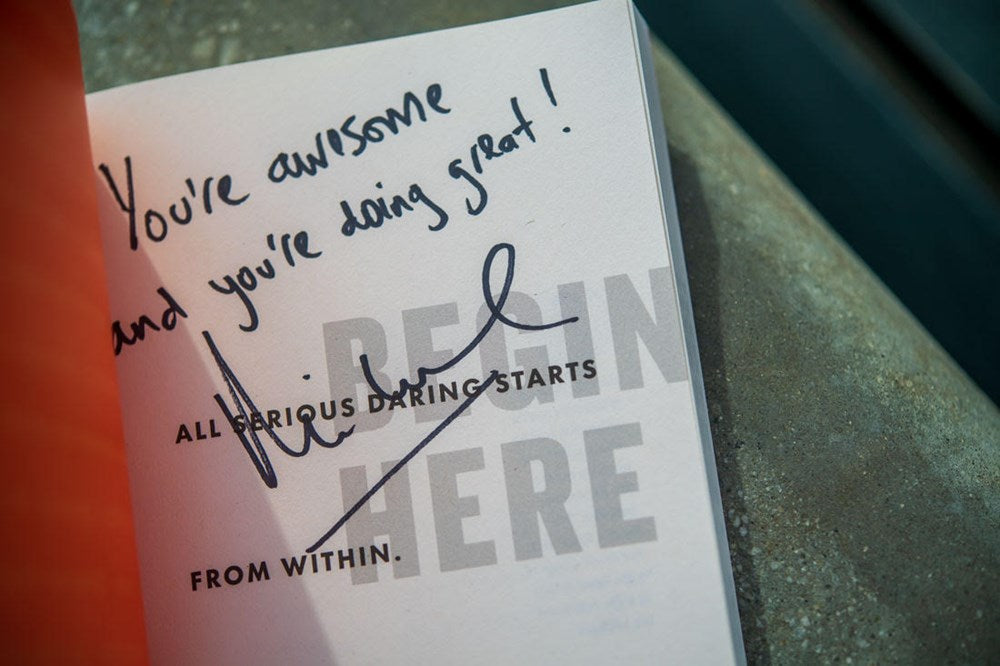 You're awesome
and you're doing great!
BEGIN
ALL SERIOUS DARING STARTS
HERE
FROM WITHIN.